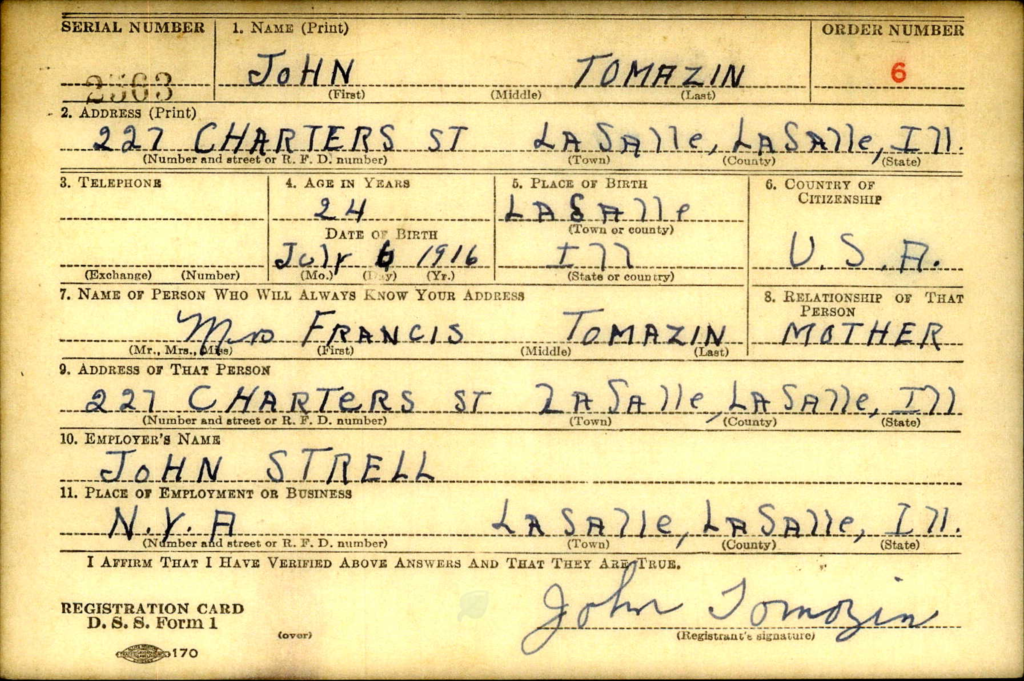 SERIAL NUMBER 1. NAME (Print) ORDER NUMBER
2563 JOHN TOMAZIN 6
(First) (Middle) (Last)
2. ADDRESS (Print)
227 CHARTERS ST LASAlle, LASAlle, Ill.
(Number and street or R. F. D. number) (Town) (County) (State)
3. TELEPHONE 4. AGE IN YEARS 5. PLACE OF BIRTH 6. COUNTRY OF CITIZENSHIP
24 LASAlle
DATE OF BIRTH (Town or county)
July 6 1916 Ill U.S.A.
(Exchange) (Number) (Mo.) (Day) (Yr.) (State or country)
7. NAME OF PERSON WHO WILL ALWAYS KNOW YOUR ADDRESS 8. RELATIONSHIP OF THAT PERSON
Mrs FRANCIS TOMAZIN MOTHER
(Mr., Mrs., Miss) (First) (Middle) (Last)
9. ADDRESS OF THAT PERSON
227 CHARTERS ST LASAlle, LASAlle, Ill
(Number and street or R. F. D. number) (Town) (County) (State)
10. EMPLOYER'S NAME
JOHN STRELL
11. PLACE OF EMPLOYMENT OR BUSINESS
N.Y.A LASAlle, LASAlle, Ill.
(Number and street or R. F. D. number) (Town) (County) (State)
I AFFIRM THAT I HAVE VERIFIED ABOVE ANSWERS AND THAT THEY ARE TRUE.
REGISTRATION CARD
D. S. S. Form 1 John Tomazin
(over) (Registrant's signature)
170